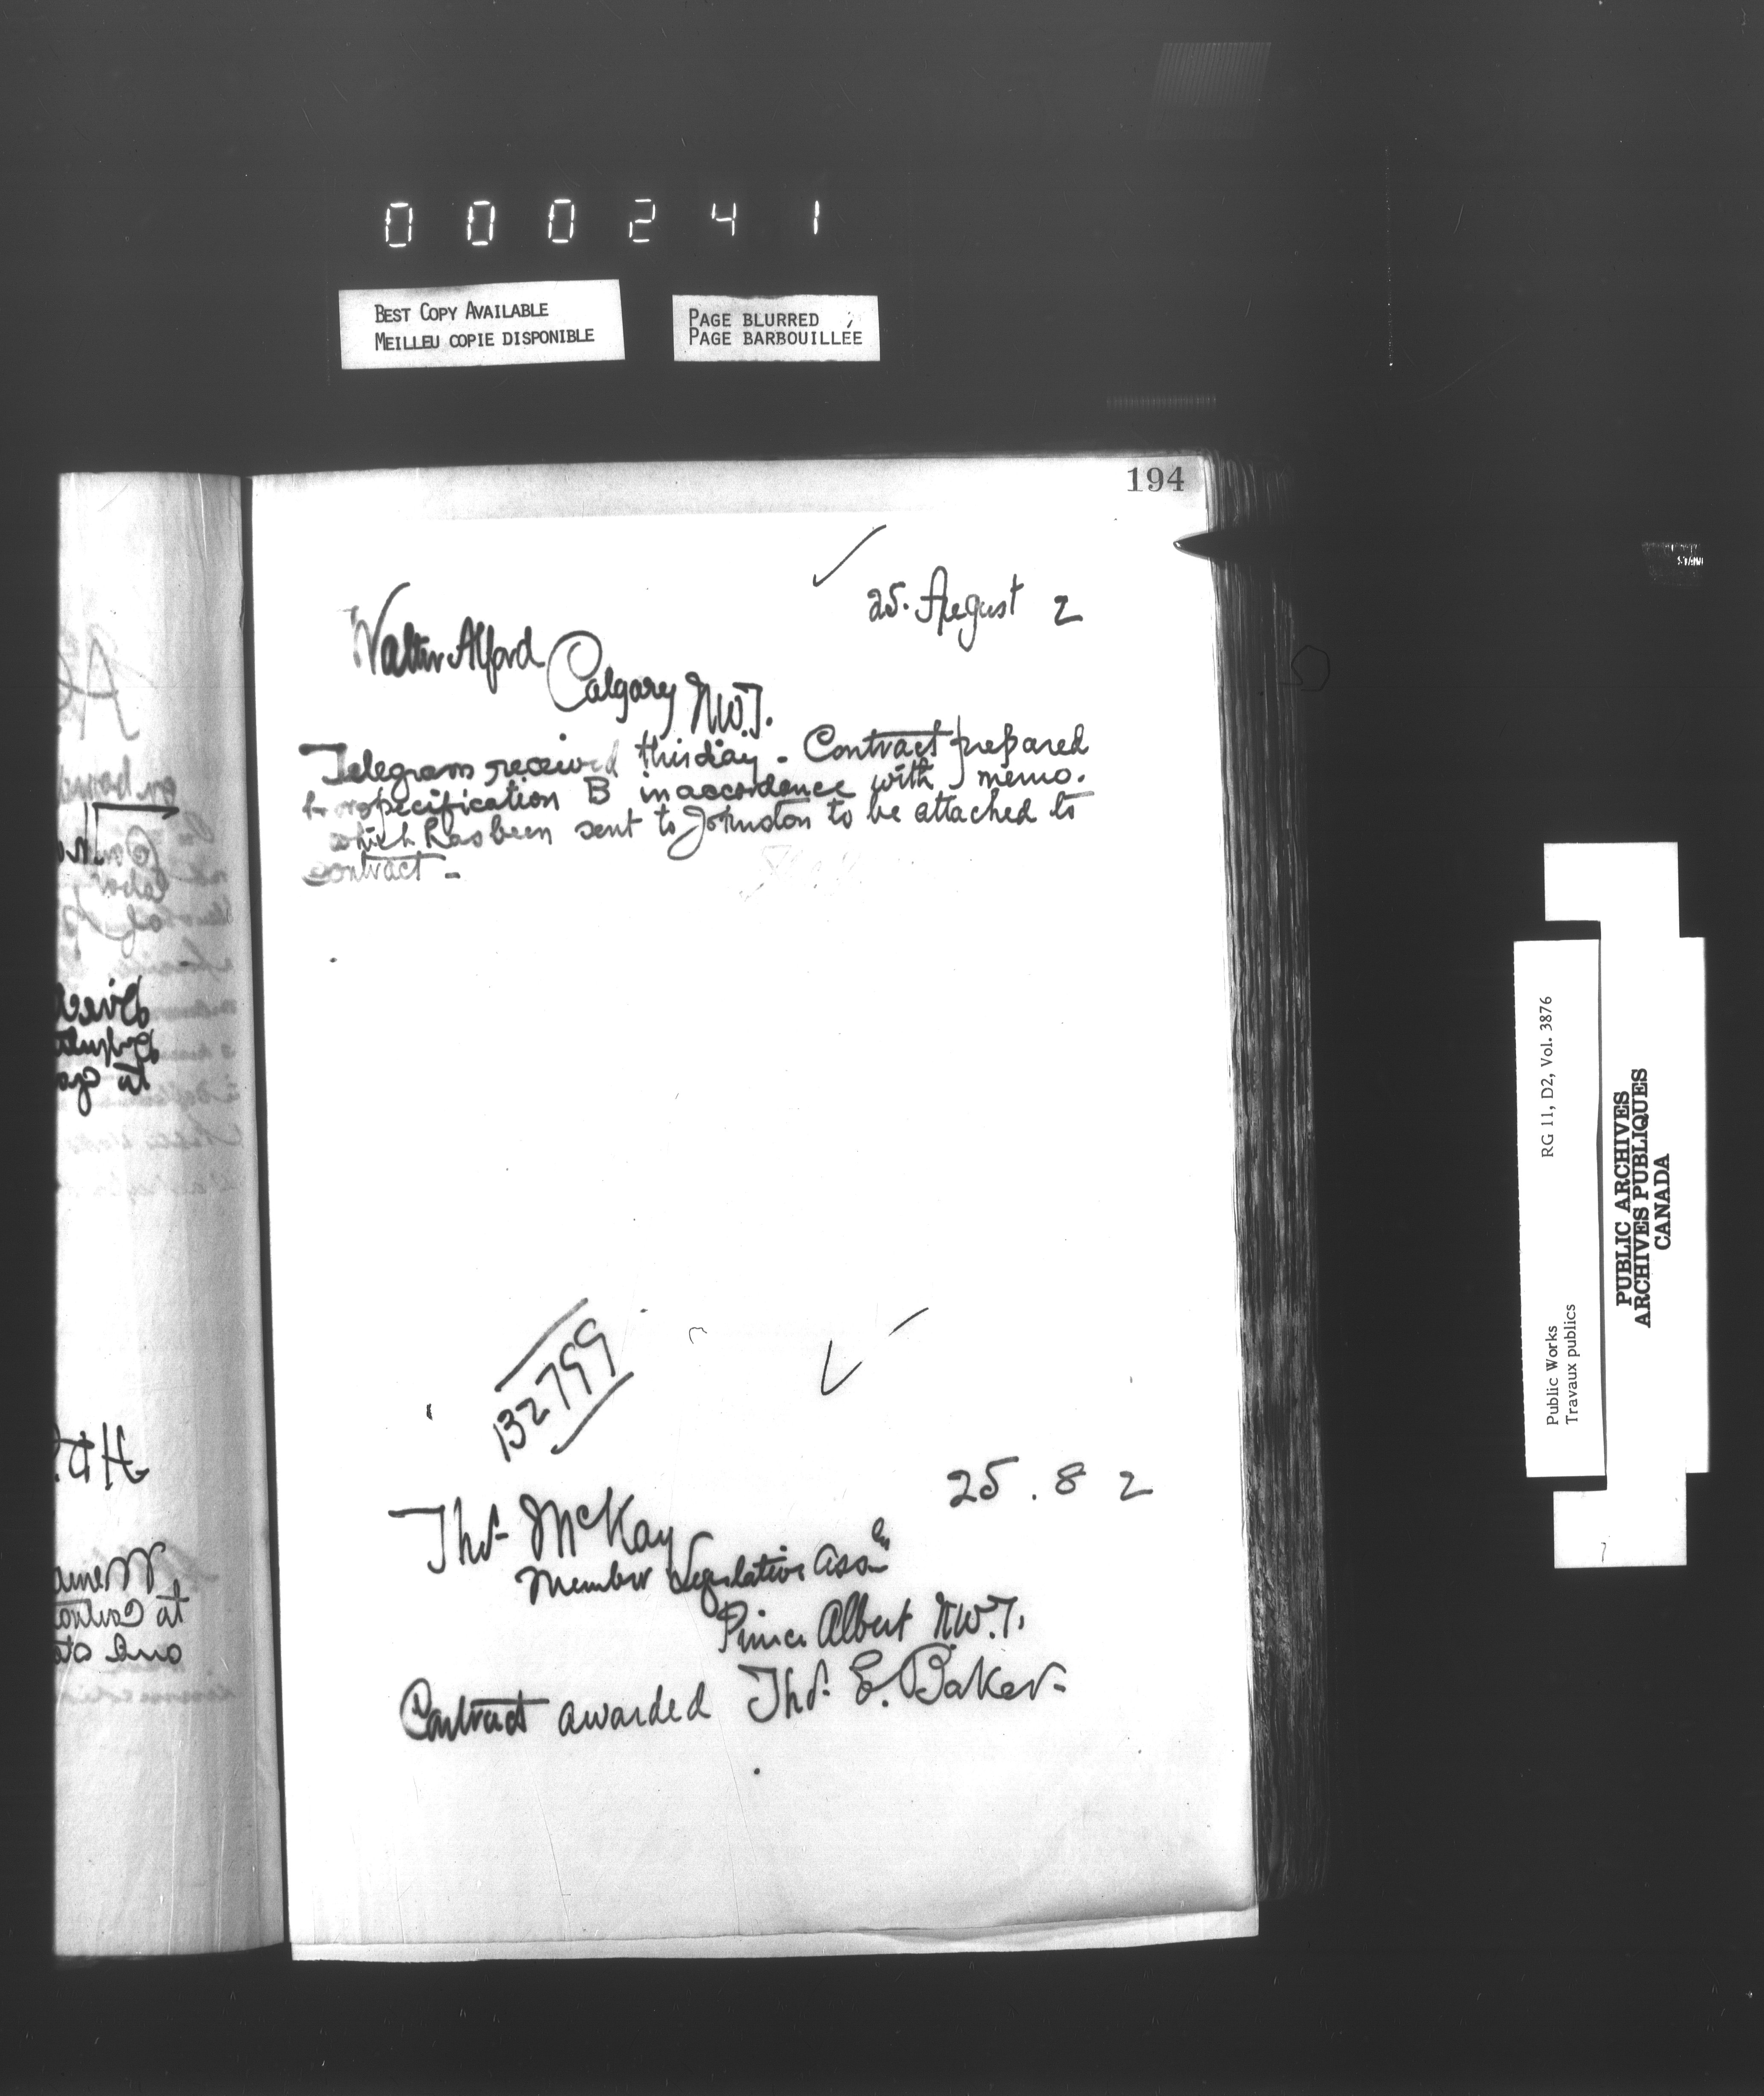 000241
BEST COPY AVAILABLE
MEILLEU COPIE DISPONIBLE
PAGE BLURRED ;
PAGE BARBOUILLÉE
194
25. August 2
Walter Alford
Calgary N.W.T.
Telegram received this day - Contract prepared
specification B in accordance with memo.
which has been sent to Johnston to be attached to
contract -
132799
25.8 2
Thos McKay
Member Legislative Assn
Prince Albert N.W.T.
Contract awarded Thos. E. Baker -
Public Works
Travaux publics
RG 11, D2, Vol. 3876
PUBLIC ARCHIVES
ARCHIVES PUBLIQUES
CANADA